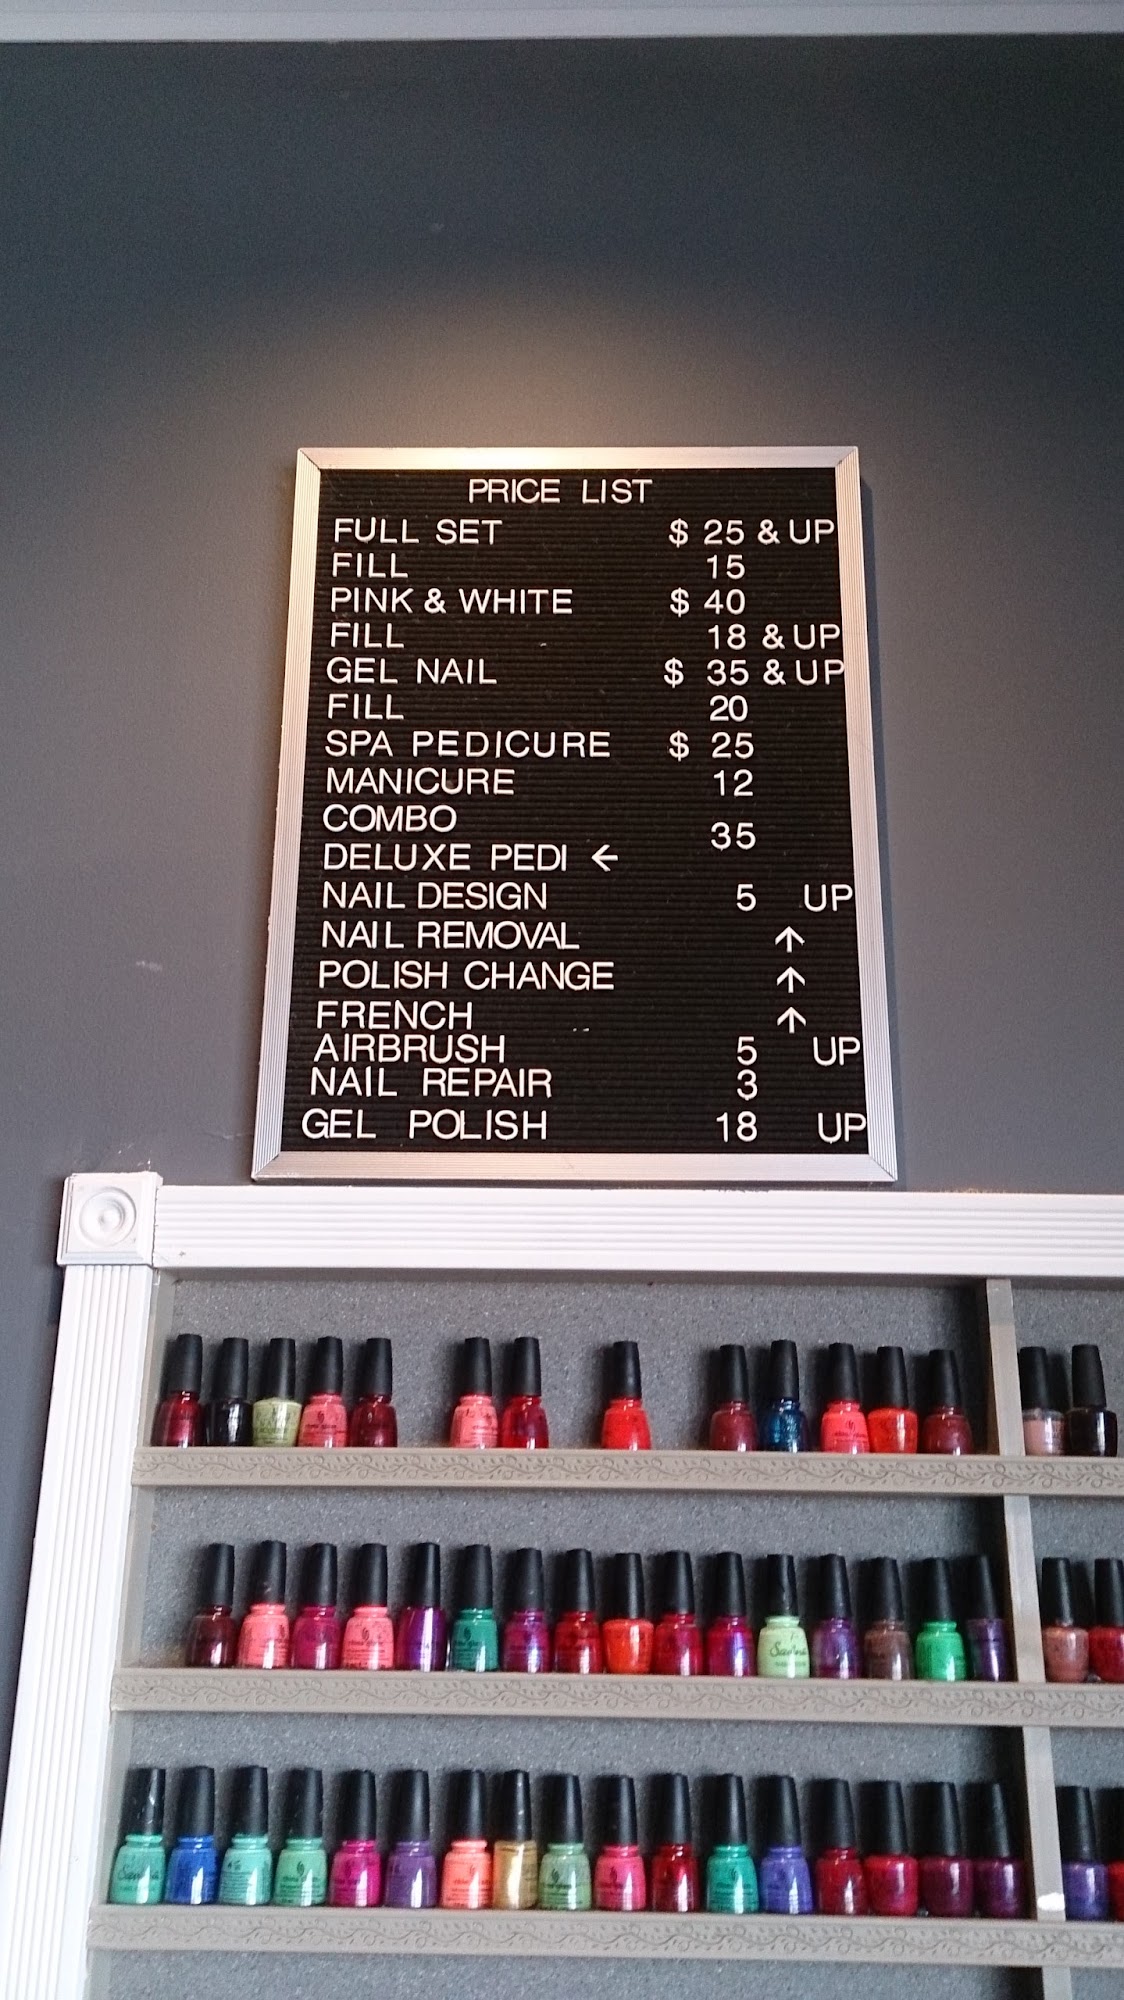 PRICE LIST
FULL SET $ 25 & UP
FILL 15
PINK & WHITE $ 40
FILL 18 & UP
GEL NAIL $ 35 & UP
FILL 20
SPA PEDICURE $ 25
MANICURE 12
COMBO
35
DELUXE PEDI ←
NAIL DESIGN 5 UP
NAIL REMOVAL ↑
POLISH CHANGE ↑
FRENCH ↑
AIRBRUSH 5 UP
NAIL REPAIR 3
GEL POLISH 18 UP